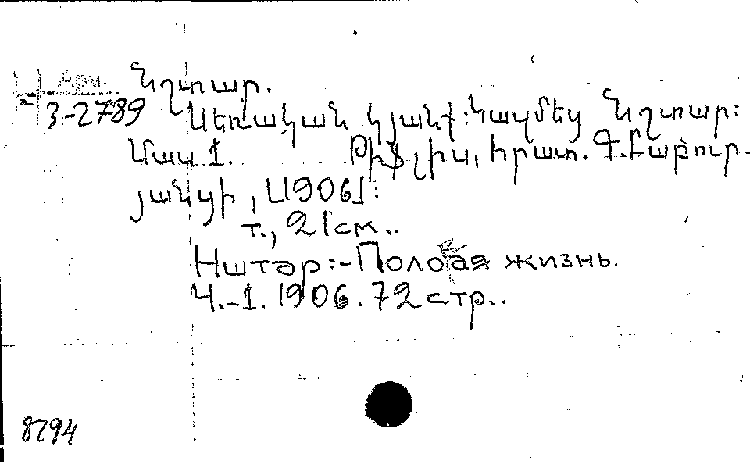 Նշտար.
3-2789
Սեռական կյանք: Կազմեց Նշտար:
Մաս 1. Թիֆլիս, հրատ. Գ. Քաթուր-
յանցի, [1906]:
т., 21 см..
Нштар:-Половая жизнь.
Ч.-1. 1906. 72 стр..
8294